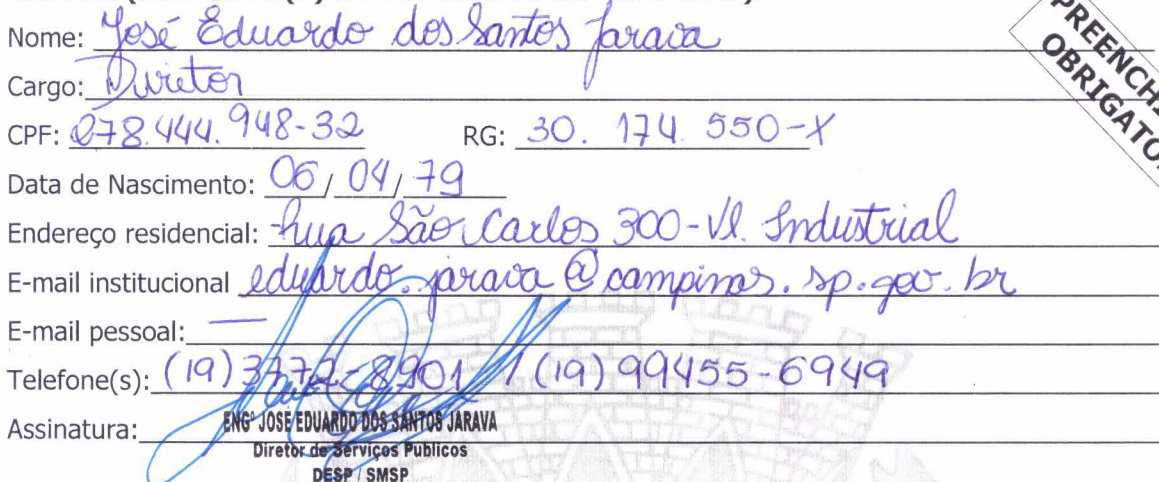 Nome: José Eduardo dos Santos Jarava
Cargo: Diretor
CPF: 278.444.948-32 RG: 30.174.550-X
Data de Nascimento: 06/04/79
Endereço residencial: Rua São Carlos 300-Vl. Industrial
E-mail institucional eduardo.jarava@campinas.sp.gov.br
E-mail pessoal: —
Telefone(s): (19)3772-8901 / (19)99455-6949
Assinatura:
ENGº JOSÉ EDUARDO DOS SANTOS JARAVA
Diretor de Serviços Públicos
DESP / SMSP